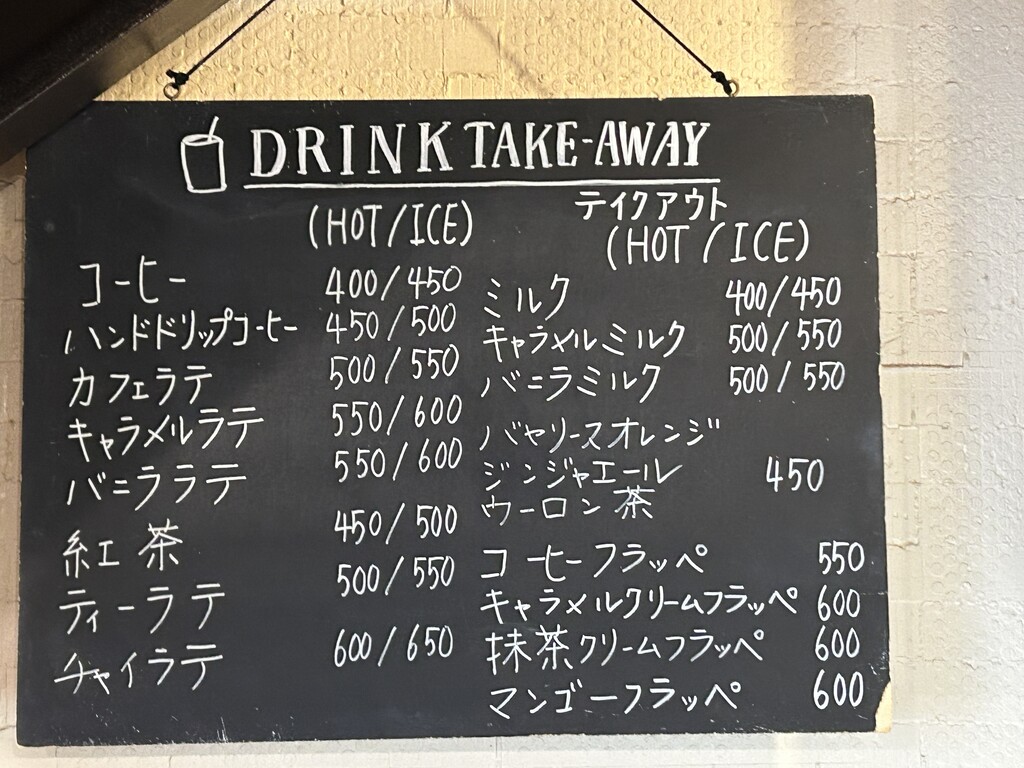 DRINK TAKE-AWAY
テイクアウト
(HOT/ICE)
コーヒー 400/450
ハンドドリップコーヒー 450/500
カフェラテ 500/550
キャラメルラテ 550/600
バニララテ 550/600
紅茶 450/500
ティーラテ 500/550
チャイラテ 600/650
(HOT/ICE)
ミルク 400/450
キャラメルミルク 500/550
バニラミルク 500/550
バヤリースオレンジ
ジンジャエール 450
ウーロン茶
コーヒーフラッペ 550
キャラメルクリームフラッペ 600
抹茶クリームフラッペ 600
マンゴーフラッペ 600